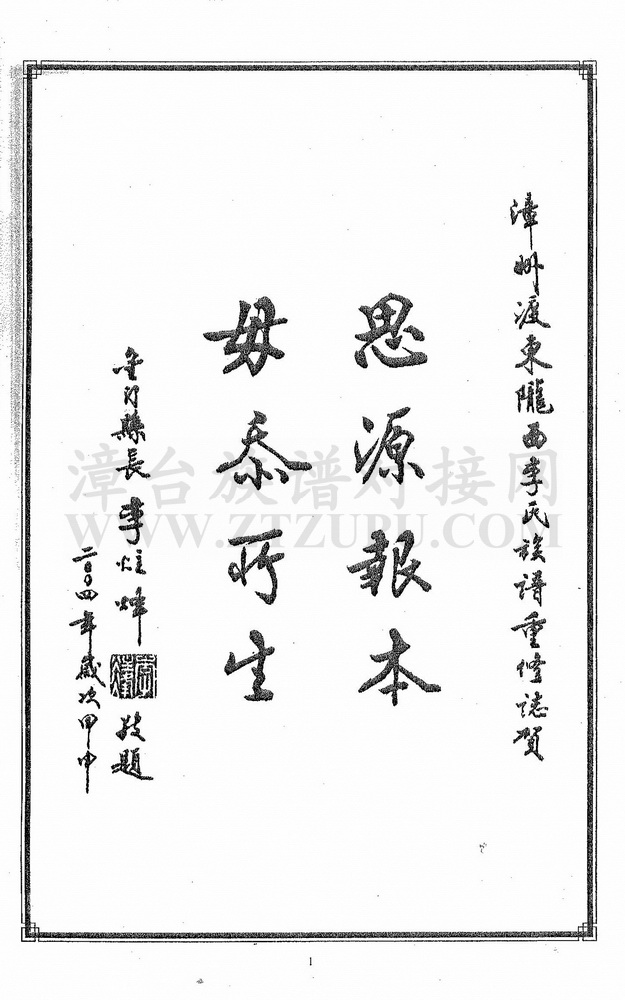 漳州渡東隴西李氏族譜重修誌賀
思源報本
毋忝所生
金門縣長李炷烽
敬題
二〇〇四年歲次甲申
漳台族谱对接网
WWW.ZTZUPU.COM
1